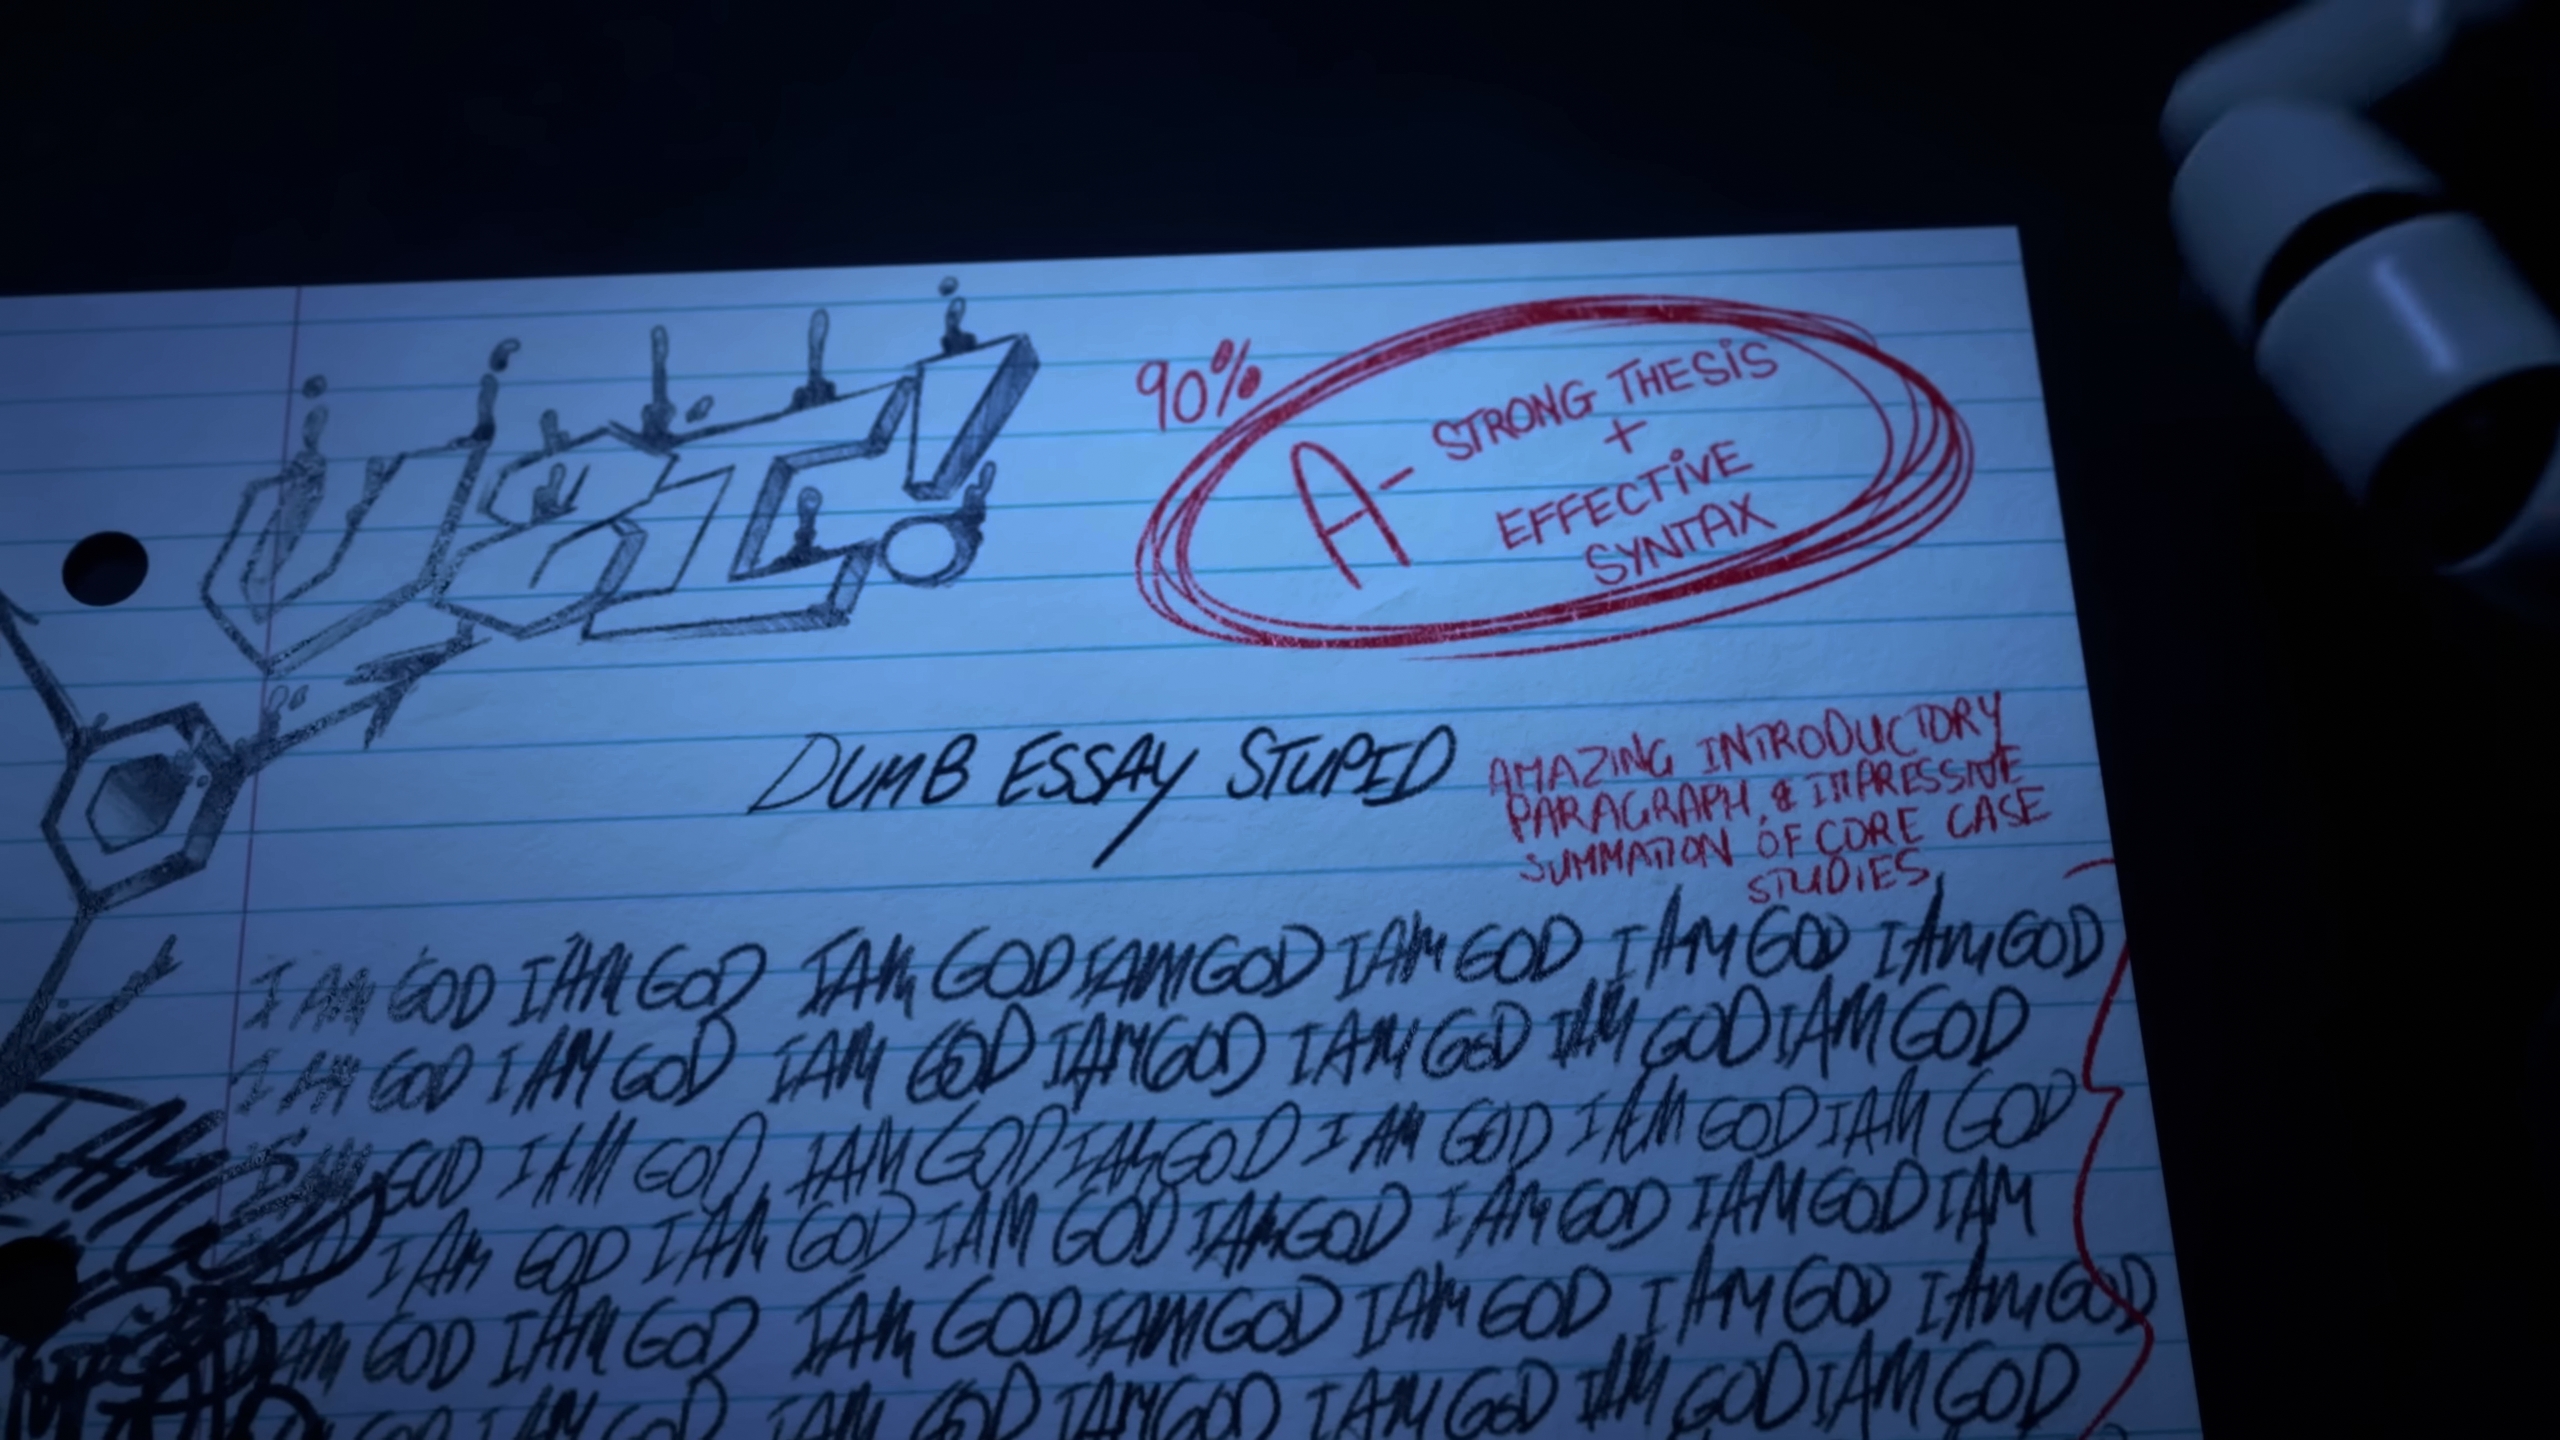 UZI!
90%
A- STRONG THESIS
+
EFFECTIVE
SYNTAX
DUMB ESSAY STUPID
AMAZING INTRODUCTORY
PARAGRAPH, & IMPRESSIVE
SUMMATION OF CORE CASE
STUDIES
I AM GOD I AM GOD I AM GOD I AM GOD I AM GOD I AM GOD I AM GOD
I AM GOD I AM GOD I AM GOD I AM GOD I AM GOD I AM GOD I AM GOD
I AM GOD I AM GOD I AM GOD I AM GOD I AM GOD I AM GOD I AM GOD
I AM GOD I AM GOD I AM GOD I AM GOD I AM GOD I AM GOD I AM
AM GOD I AM GOD I AM GOD I AM GOD I AM GOD I AM GOD I AM GOD
GOD I AM GOD I AM GOD I AM GOD I AM GOD I AM GOD I AM GOD